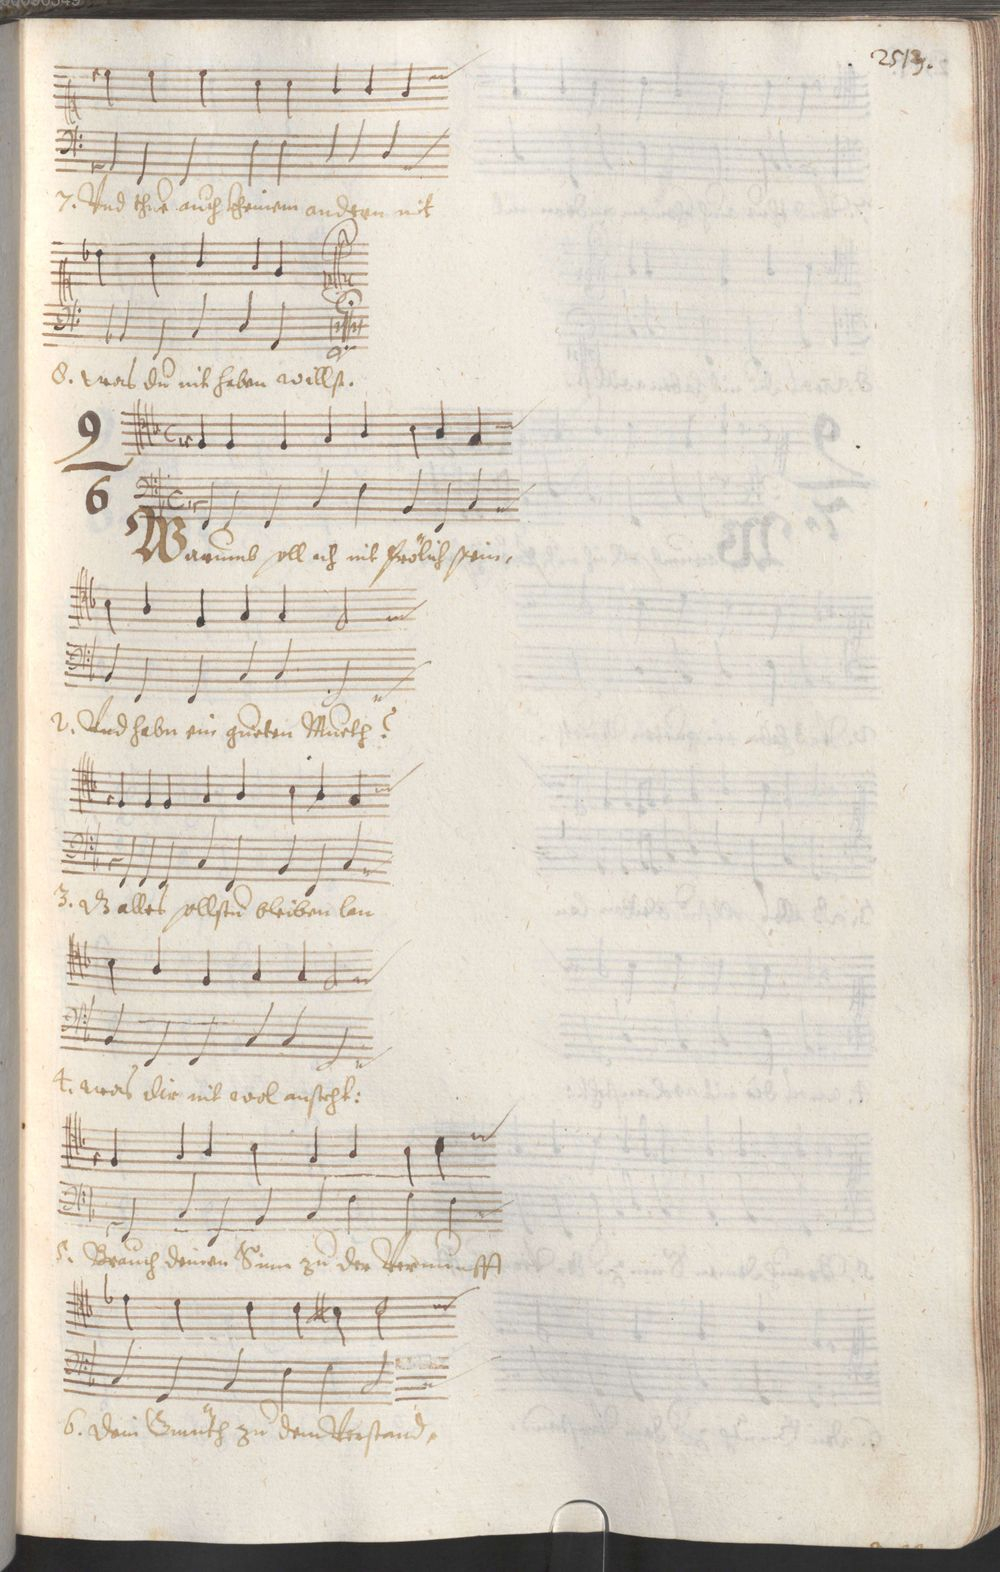 7. Und thue auch kheinem andern nit
8. was du nit haben willst.
9
6
Warumb soll ich nit frölich sein,
2. Und habn ein gueten Mueth?
3. alles sollstu bleiben lan
4. was dir nit wol ansteht:
5. Brauch deinen Sinn zu der Vernunfft
6. dein Gmüth zu dem Verstand,